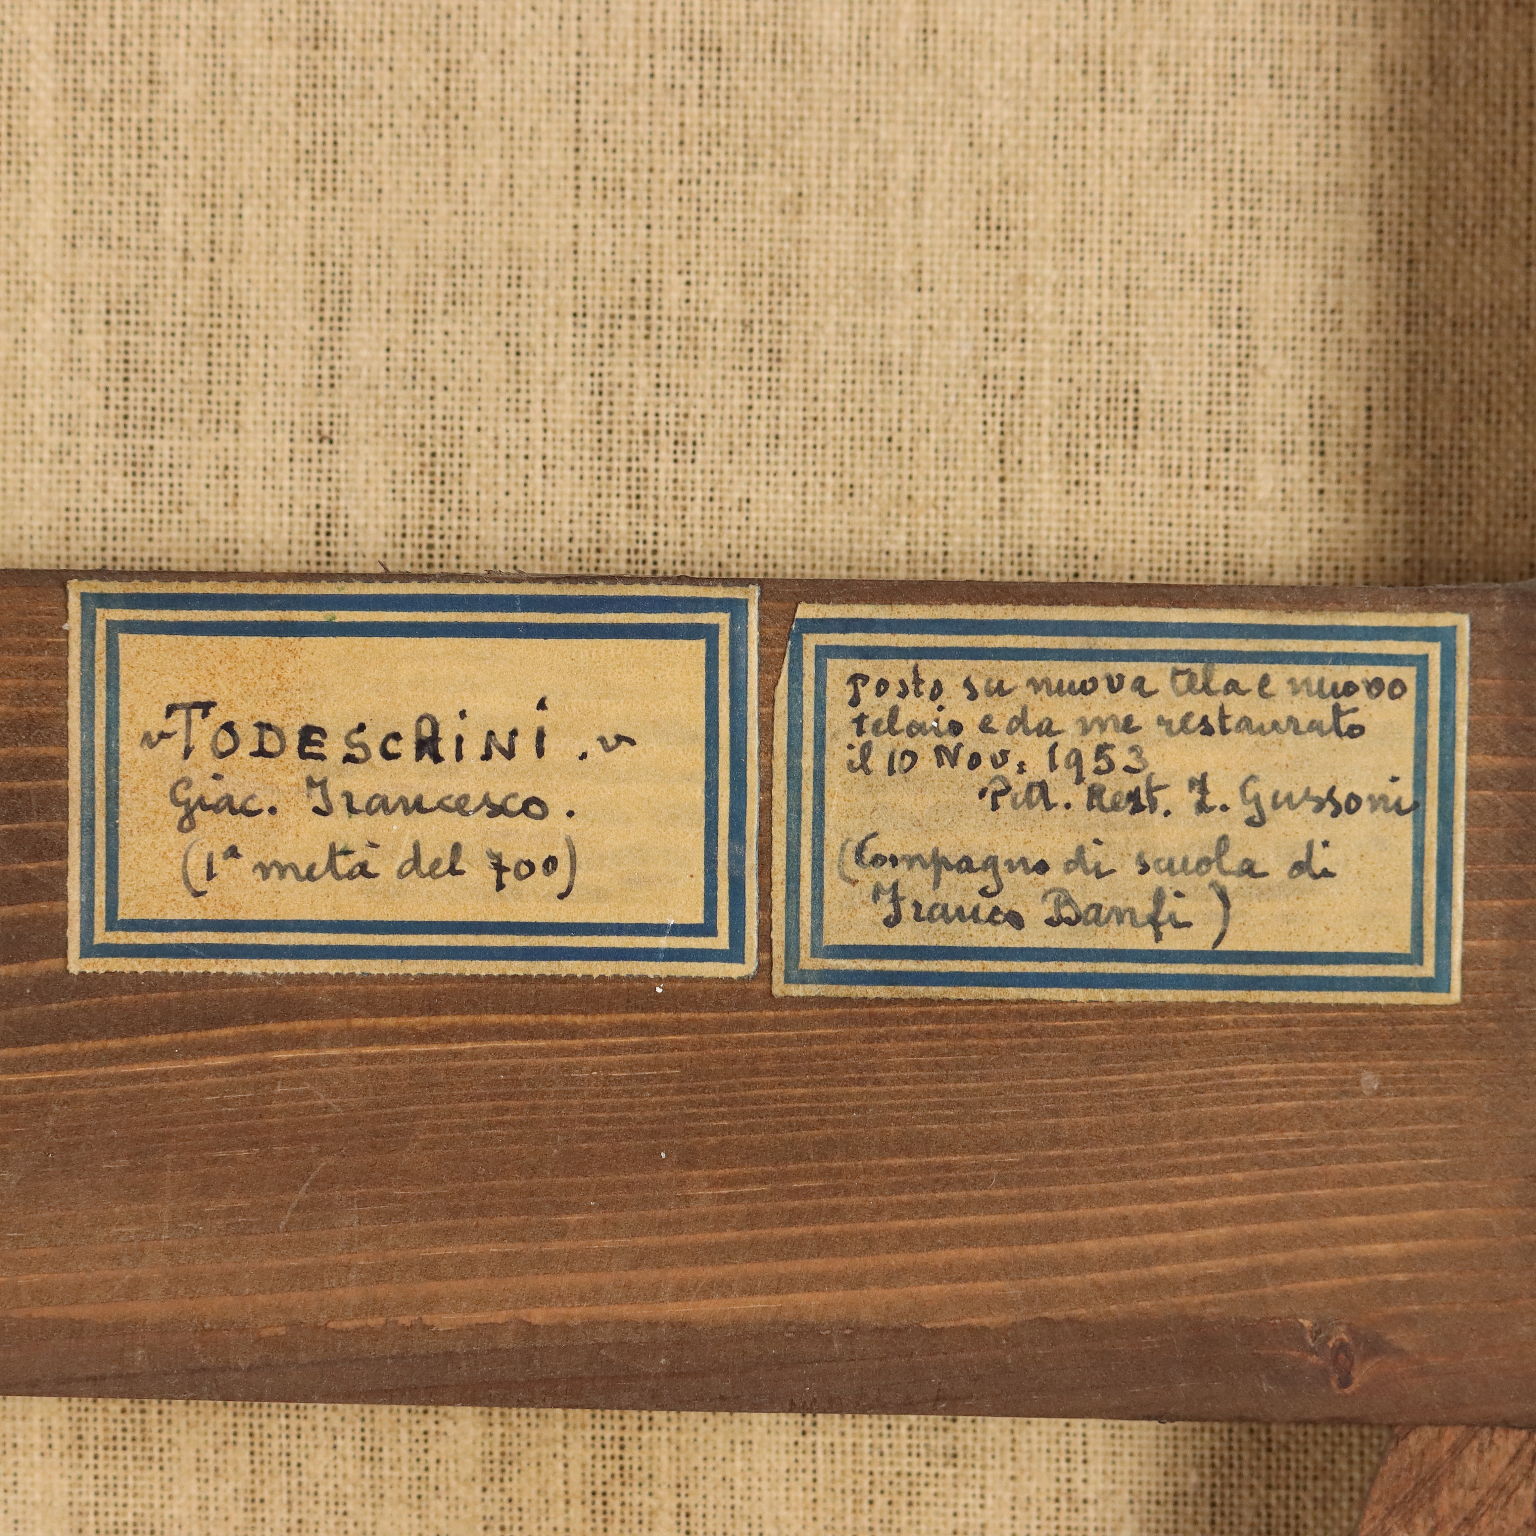 "TODESCHINI."
Giac. Francesco.
(1ª metà del 700)
posto su nuova tela e nuovo
telaio e da me restaurato
il 10 Nov. 1953
Pitt. Rest. I. Gussoni
(Compagno di scuola di
Franco Banfi)